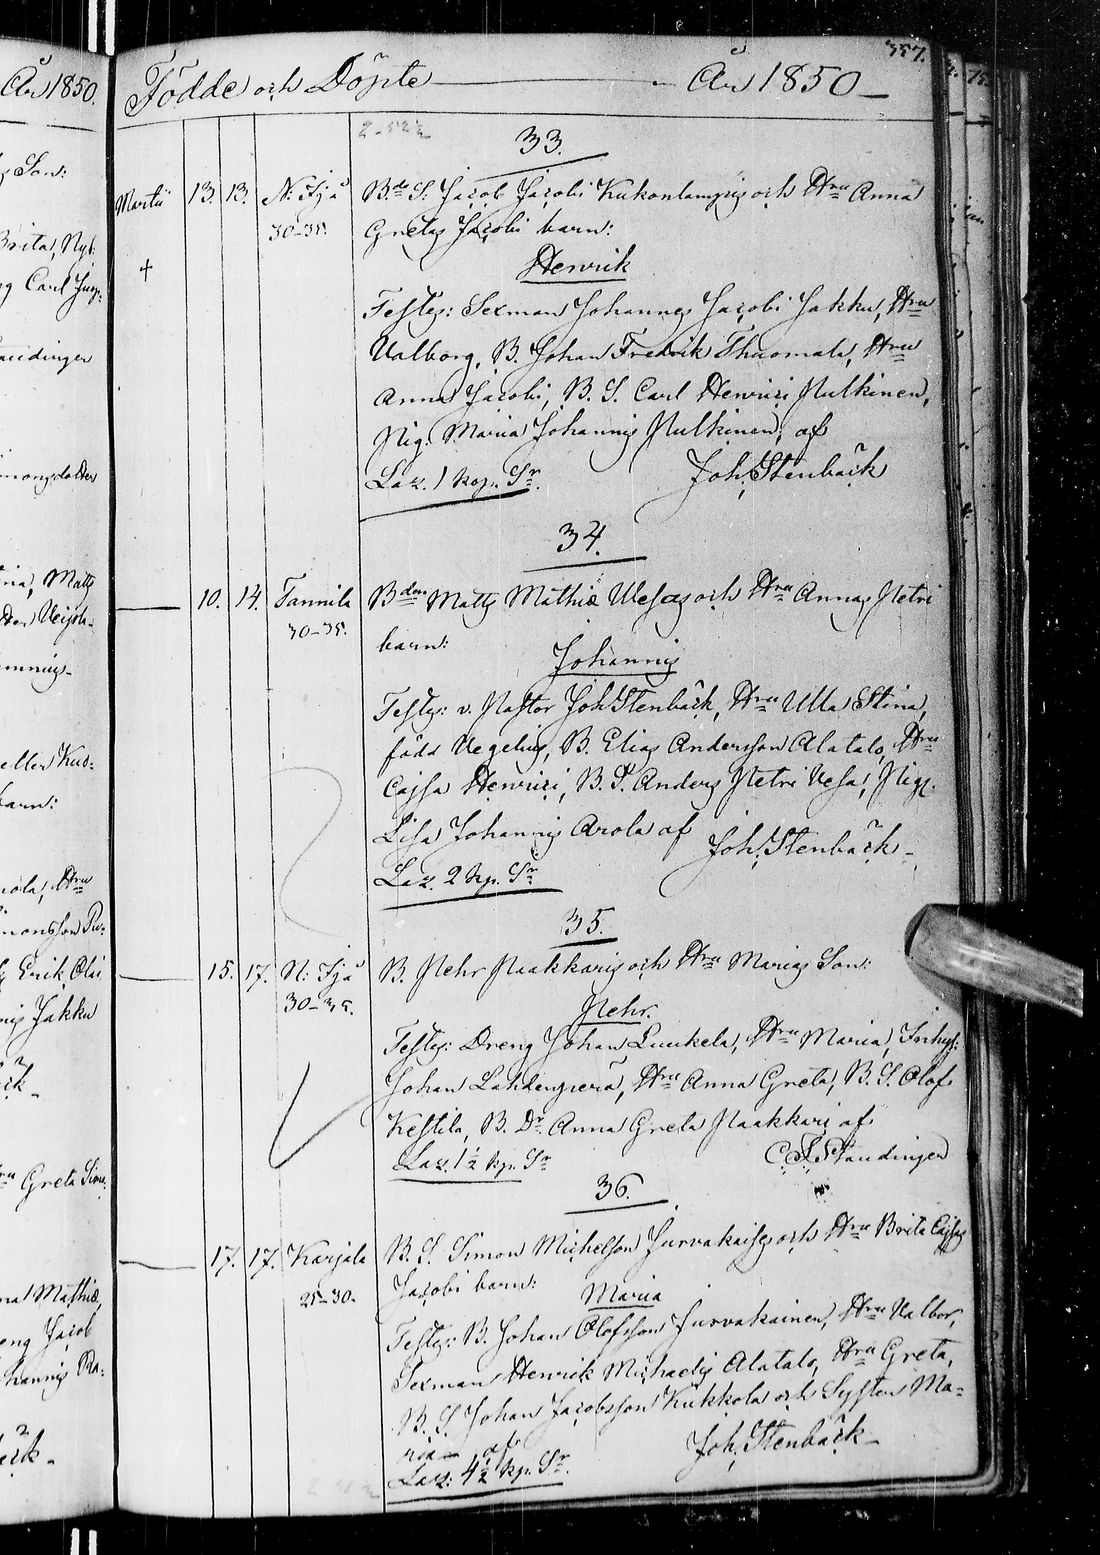 År 1850.
Födde och Döpte År 1850
357.
33.
Martii 13. 13. N: Ijå 30–35.
Bde S. Jacob Jacobi Kukonlampis och Hru Anna
Gretas Jacobi barn:
Henrik
Testes: Sexman Johannes Jacobi Jakku, Hru
Valborg, B. Johan Fredrik Thuomala, Hru
Anna Jacobi, B. S. Carl Henrici Pulkinen,
Pig. Maria Johannis Pulkinen; af
Laz. 1 kop. Sr. Joh. Stenbäck
34.
10. 14. Tannila 30–35.
Bden Matts Mathiæ Wesas och Hru Annas Petri
barn:
Johannis
Testes: v. Pastor Joh Stenbäck, Hru Ulla Stina,
född Vegelius, B. Elias Andersson Alatalo, Hru
Cajsa Henrici, B. S. Anders Petri Vesa, Pig.
Lisa Johannis Arola af
Laz. 2 kp. Sr. Joh. Stenbäck
35.
15. 17. N: Ijå 30–35.
B. Pehr Paakkaris och Hru Marias Son:
Pehr.
Testes: Dreng Johan Luukela, Hru Maria, Inhys:
Johan Lahdenperä, Hru Anna Greta, B. S. Olof
Kestila, B. Dr. Anna Greta Paakkari af
Laz. 1½ kp. Sr C. S. Staudinger
36.
17. 17. Karjala 25–30.
B. S. Simon Michelson Jurvakaises och Hru Brita Cajsas
Jacobi barn:
Maria
Testes: B. Johan Olofsson Jurvakainen, Hru Valbor,
Sexman Henrik Michaelis Alatalo, Hru Greta,
B. S. Johan Jacobsson Kukkola och Systen Ma=
ria af
Laz: 4½ kp. Sr. Joh. Stenbäck